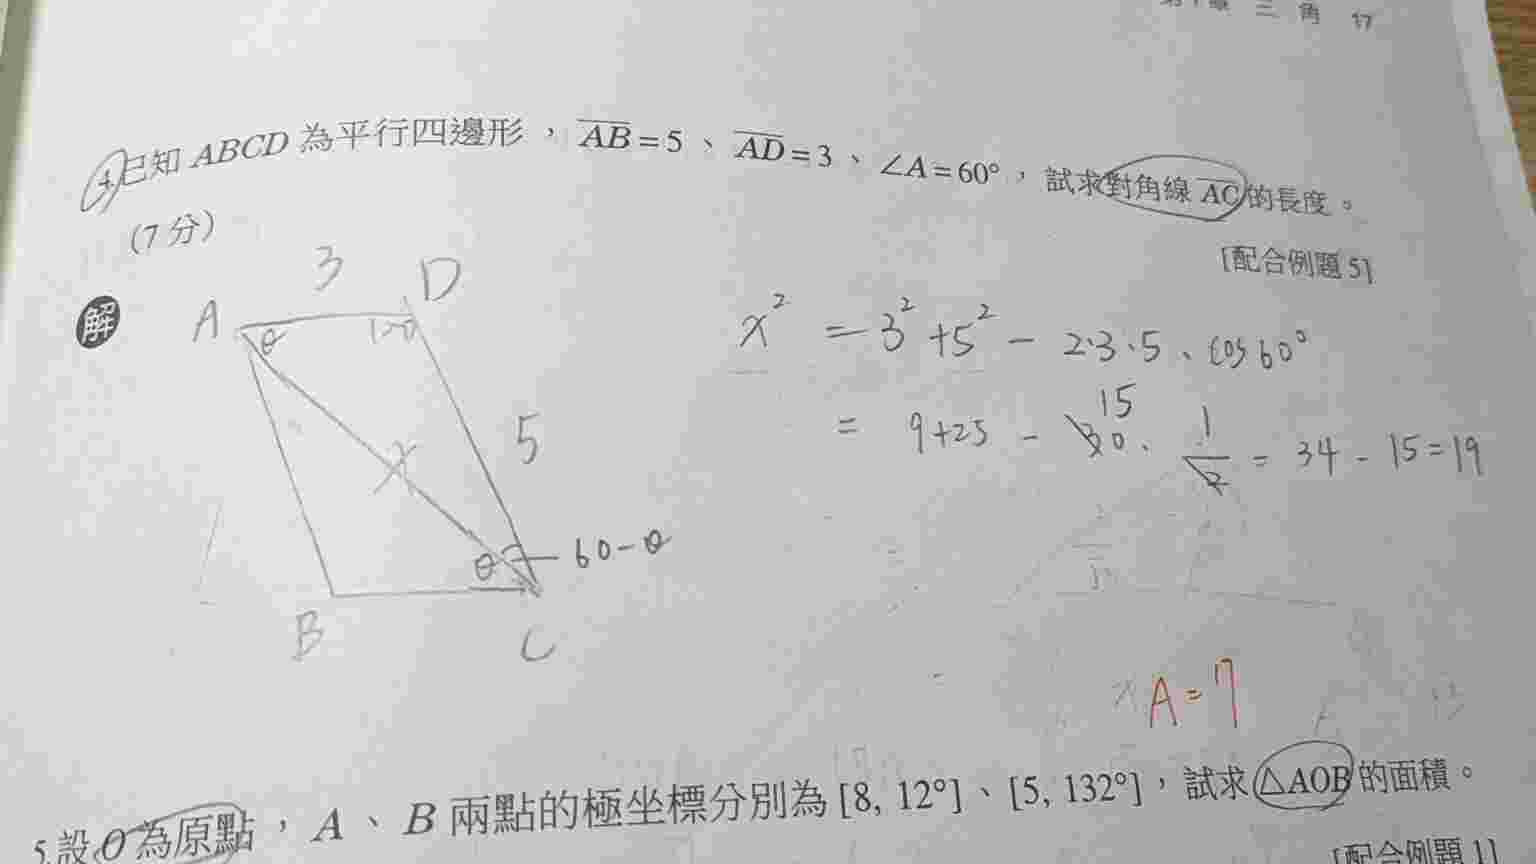 三 角 17
4.已知 ABCD 為平行四邊形,AB=5、AD=3、∠A=60°,試求對角線 AC 的長度。
(7 分)
[配合例題 5]
解
3
A
D
θ
120
5
x
θ
60-θ
B
C
x² = 3²+5² - 2·3·5·cos60°
= 9+25 - 30·1/2 = 34-15=19
15
A=7
5.設 O 為原點,A、B 兩點的極坐標分別為 [8, 12°]、[5, 132°],試求 △AOB 的面積。
[配合例題 1]